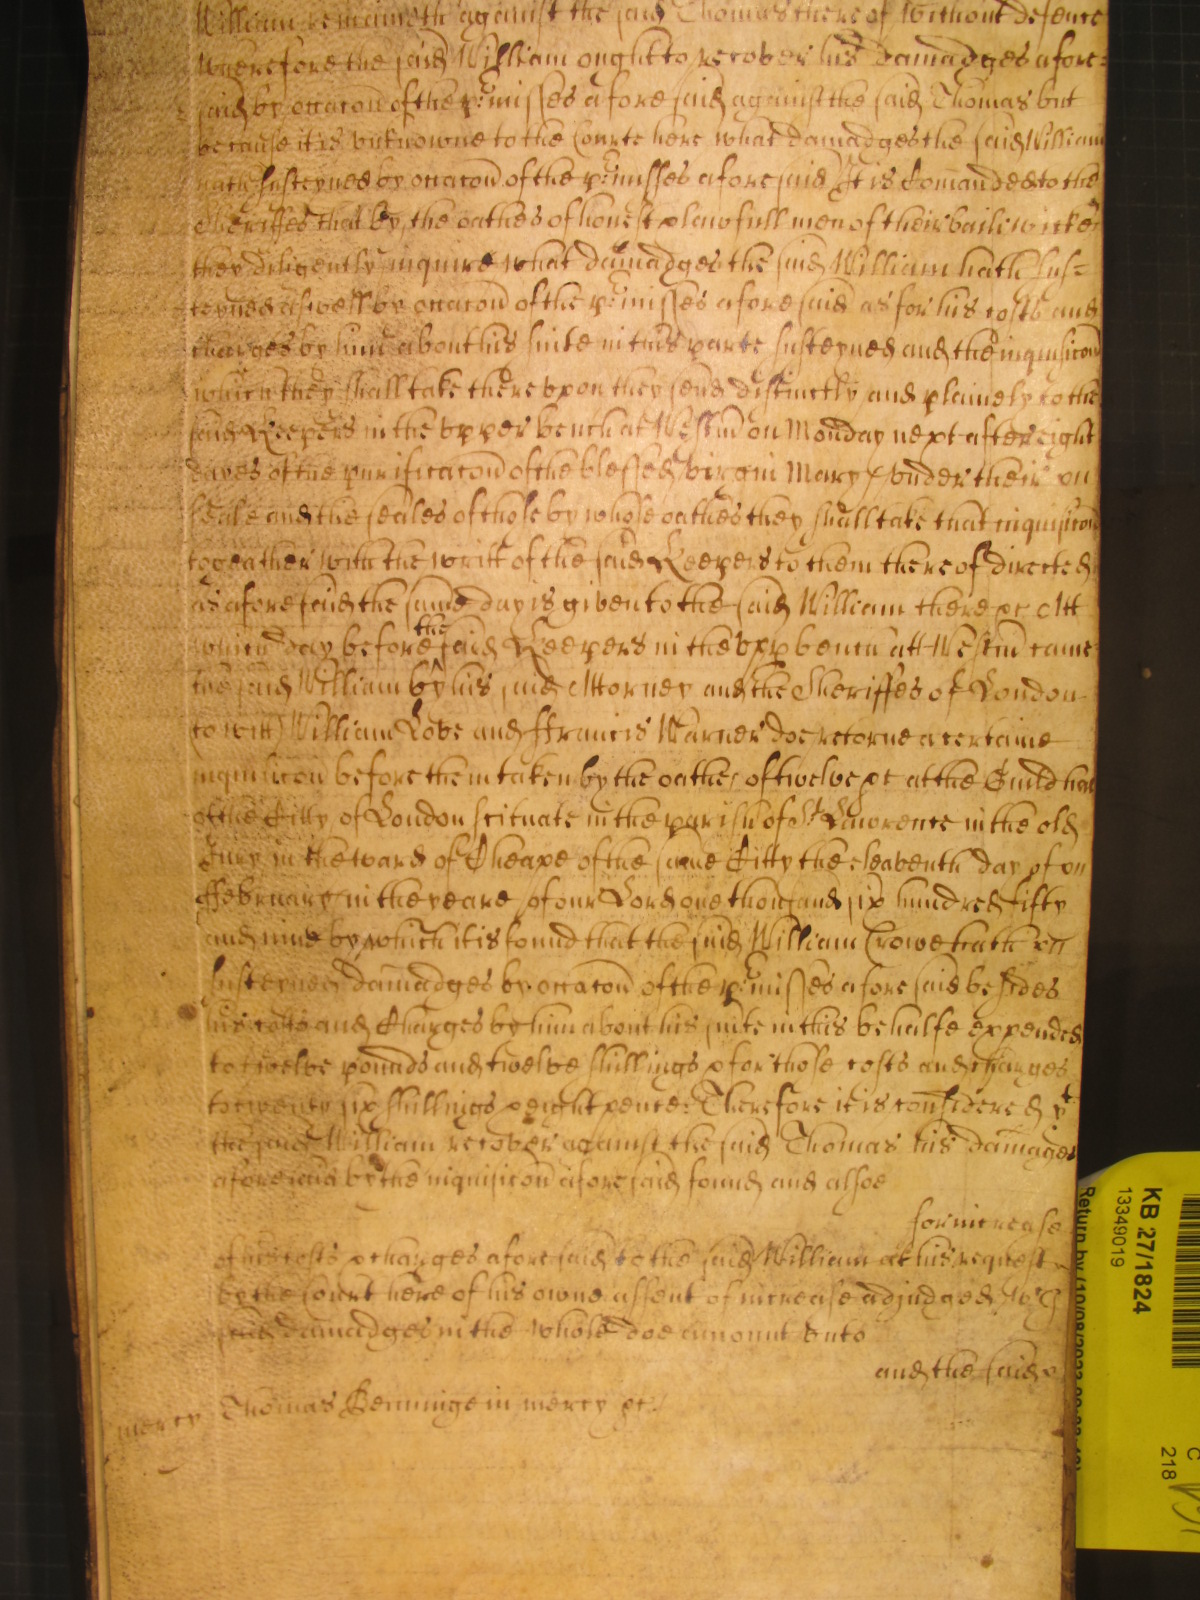 William remaineth against the said Thomas thereof without defence
wherefore the said William ought to recover his damadges afore=
said by occacon of the p'misses aforesaid against the said Thomas but
because it is unknowne to the Courte here what damadges the said William
hath susteyned by occacon of the p'misses aforesaid It is Comanded to the
Sheriffes that by the oathes of honest & lawfull men of their bailiwicke
they diligently inquire what damadges the said William hath sus=
teyned aswell by occacon of the p'misses aforesaid as for his costs and
charges by him about his suite in this parte susteyned and the inquisicon
which they shall take thereupon they send distinctly and plainely to the
said Keepers in the upper bench at Westm on Monday next after eight
dayes of the purificacon of the blessed virgin Mary under their
seale and the seales of those by whose oathes they shall take that inquisicon
togeather with the writt of the said Keepers to them thereof directed
as aforesaid the same day is given to the said William there &c Att
which day before the said Keepers in the upp bench att Westm came
the said William by his said Attorney and the Sheriffes of London
to witt William Love and Ffrancis Warner doe retorne a certaine
inquisicon before them taken by the oathes of twelve &c at the Guildhall
of the Citty of London scituate in the parish of St Lawrence in the old
Jury in the ward of Cheape of the same Citty the eleaventh day of
ffebruary in the yeare of our Lord one thousand six hundred fifty
and nine by which it is found that the said William Crowe hath
susteyned damadges by occacon of the p'misses aforesaid besides
his costs and Charges by him about his suite in this behalfe expended
to twelve pounds and twelve shillings & for those costs and charges
to twenty six shillings & eight pence Therefore it is considered yt
the said William recover against the said Thomas his damages
aforesaid by the inquisicon aforesaid found and alsoe
for increase
of his costs & charges aforesaid to the said William at his request
by the Court here of his owne assent of increase adjudged Wch
said damadges in the whole doe amount unto
and the said
mercy Thomas Benninge in mercy &c.
KB 27/1824
13349019
Return by (10/08/2022
C
218